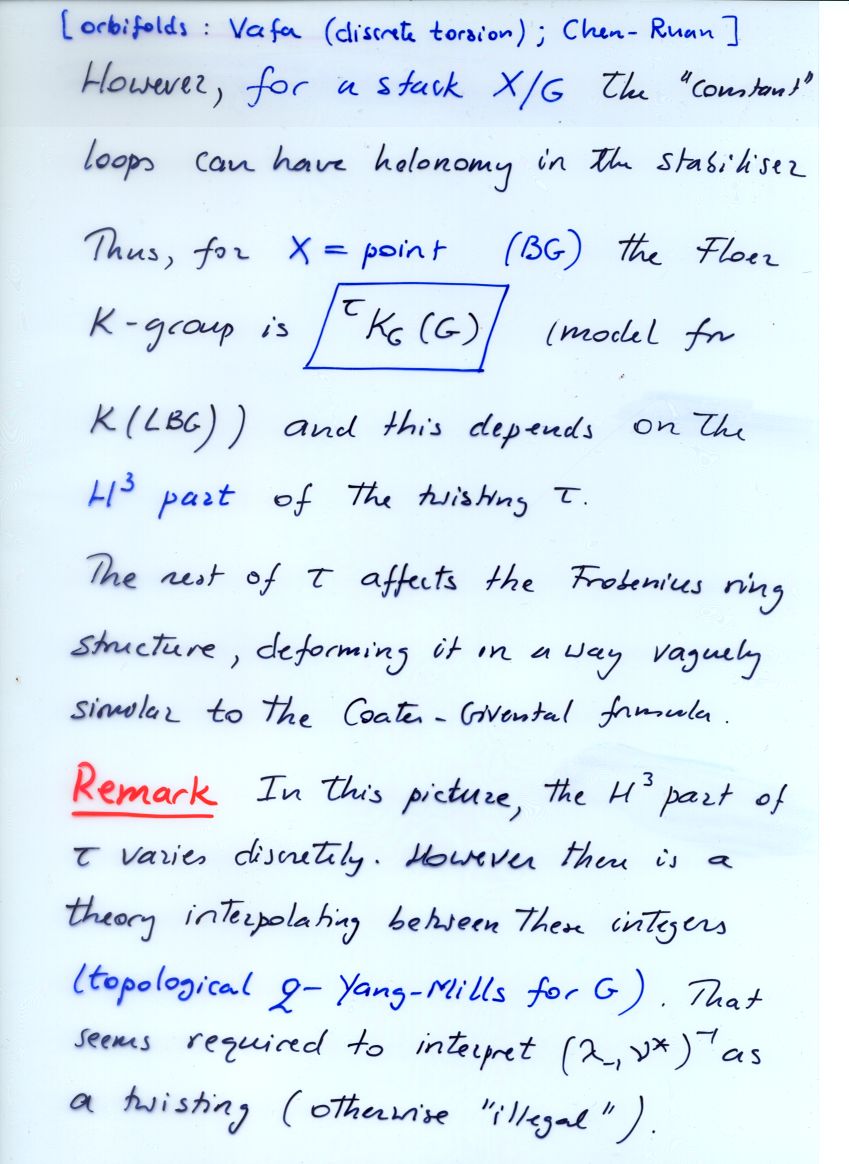 [orbifolds : Vafa (discrete torsion) ; Chen-Ruan]
However, for a stack X/G the "constant"
loops can have holonomy in the stabiliser
Thus, for X = point (BG) the Floer
K-group is τK_G(G) (model for
K(LBG)) and this depends on the
H³ part of the twisting τ.
The rest of τ affects the Frobenius ring
structure, deforming it in a way vaguely
similar to the Coates-Givental formula.
Remark In this picture, the H³ part of
τ varies discretely. However there is a
theory interpolating between these integers
(topological 2-Yang-Mills for G). That
seems required to interpret (λ_, ν*)⁻¹ as
a twisting (otherwise "illegal").